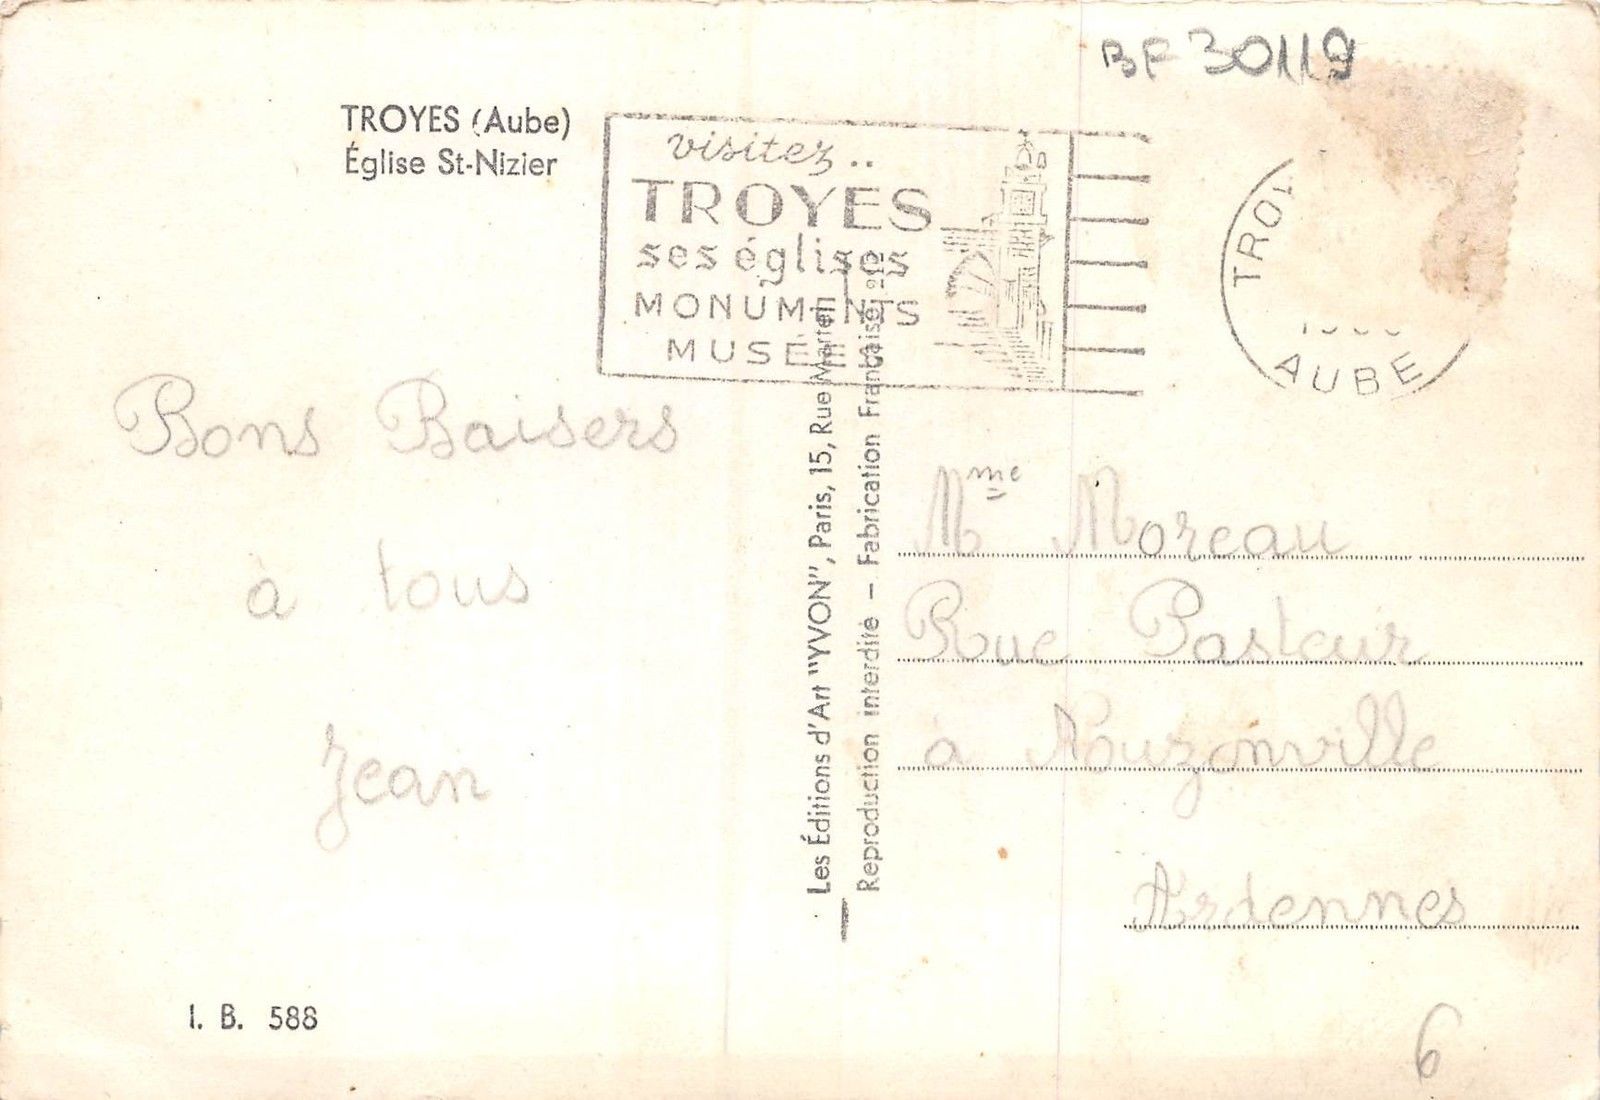 BF 30119
TROYES (Aube)
Église St-Nizier
visitez..
TROYES
ses églises
MONUMENTS
MUSÉES
AUBE
Bons Baisers
à tous
Jean
Les Éditions d'Art "YVON", Paris, 15, Rue Martel
Reproduction interdite – Fabrication Française
Mme Moreau
Rue Pasteur
à Nouzonville
Ardennes
I. B. 588
6